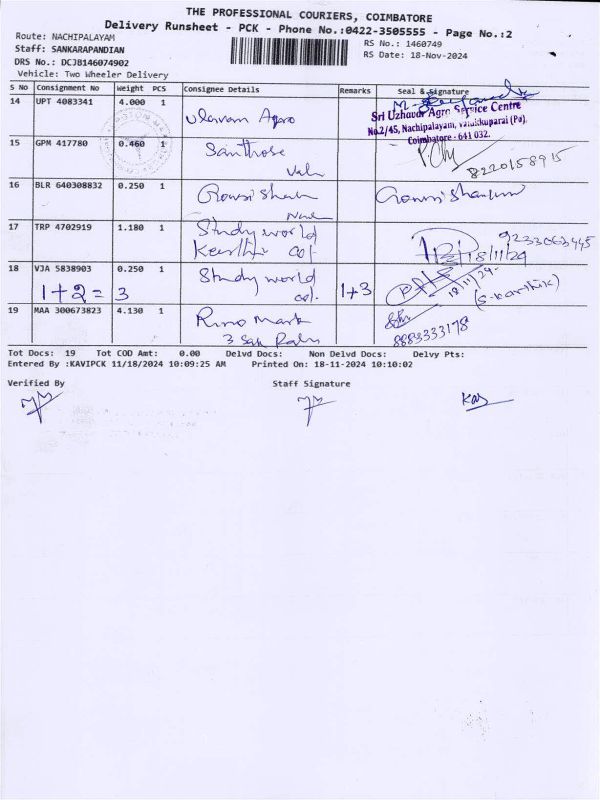 THE PROFESSIONAL COURIERS, COIMBATORE
Delivery Runsheet - PCK - Phone No.:0422-3505555 - Page No.:2
Route: NACHIPALAYAM
RS No.: 1460749
Staff: SANKARAPANDIAN
RS Date: 18-Nov-2024
DRS No.: DCJB146074902
Vehicle: Two Wheeler Delivery
S No Consignment No Weight PCS Consignee Details Remarks Seal & Signature
14 UPT 4083341 4.000 1 Agro
Sri Uzhavar Agro Service Centre
No.2/45, Nachipalayam, Valukkuparai (Po),
Coimbatore - 641 032.
15 GPM 417780 0.460 1 Santhose
8220158915
16 BLR 640308832 0.250 1 Gowri Shankar
17 TRP 4702919 1.180 1 Study world 9233063445
Keerthi col 18/11/24
18 VJA 5838903 0.250 1 Study world
1+2=3 col. 1+3 18/11/24 (S. Karthik)
19 MAA 300673823 4.130 1 Rino Mark
8883333178
Tot Docs: 19 Tot COD Amt: 0.00 Delvd Docs: Non Delvd Docs: Delvy Pts:
Entered By :KAVIPCK 11/18/2024 10:09:25 AM Printed On: 18-11-2024 10:10:02
Verified By Staff Signature